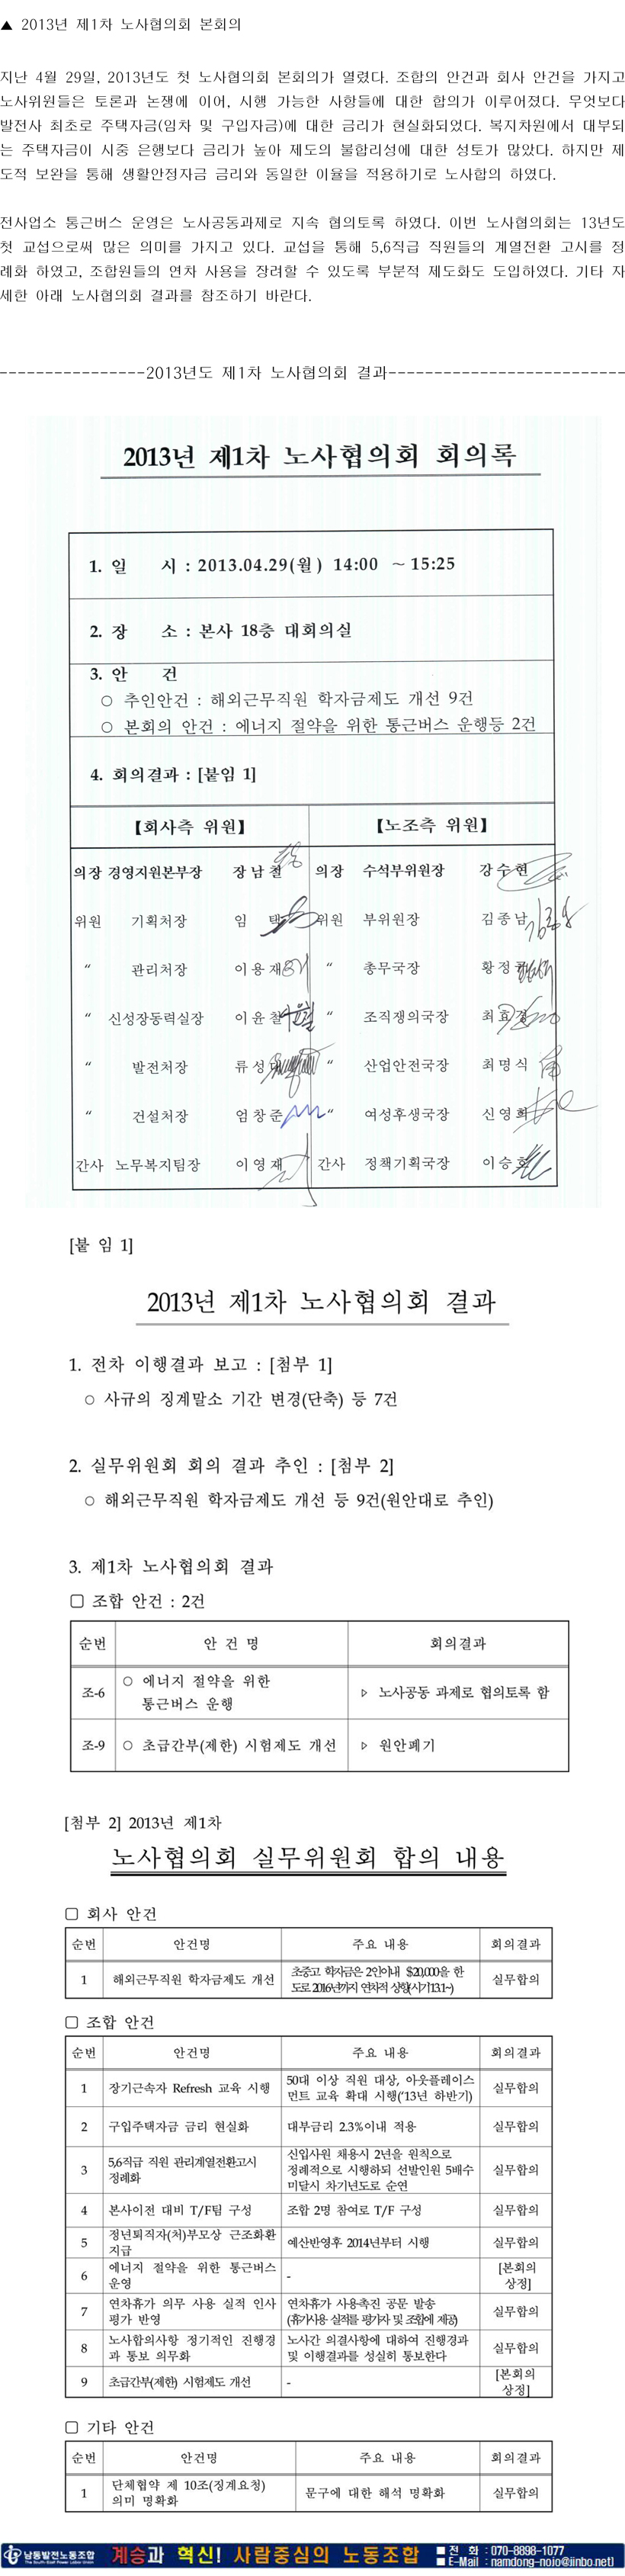 ▲ 2013년 제1차 노사협의회 본회의
지난 4월 29일, 2013년도 첫 노사협의회 본회의가 열렸다. 조합의 안건과 회사 안건을 가지고
노사위원들은 토론과 논쟁에 이어, 시행 가능한 사항들에 대한 합의가 이루어졌다. 무엇보다
발전사 최초로 주택자금(임차 및 구입자금)에 대한 금리가 현실화되었다. 복지차원에서 대부되
는 주택자금이 시중 은행보다 금리가 높아 제도의 불합리성에 대한 성토가 많았다. 하지만 제
도적 보완을 통해 생활안정자금 금리와 동일한 이율을 적용하기로 노사합의 하였다.
전사업소 통근버스 운영은 노사공동과제로 지속 협의토록 하였다. 이번 노사협의회는 13년도
첫 교섭으로써 많은 의미를 가지고 있다. 교섭을 통해 5,6직급 직원들의 계열전환 고시를 정
례화 하였고, 조합원들의 연차 사용을 장려할 수 있도록 부분적 제도화도 도입하였다. 기타 자
세한 아래 노사협의회 결과를 참조하기 바란다.
----------------2013년도 제1차 노사협의회 결과--------------------------
2013년 제1차 노사협의회 회의록
1. 일 시 : 2013.04.29(월) 14:00 ~ 15:25
2. 장 소 : 본사 18층 대회의실
3. 안 건
○ 추인안건 : 해외근무직원 학자금제도 개선 9건
○ 본회의 안건 : 에너지 절약을 위한 통근버스 운행등 2건
4. 회의결과 : [붙임 1]
【회사측 위원】 【노조측 위원】
의장 경영지원본부장 장남철 의장 수석부위원장 강수현
위원 기획처장 임 택 위원 부위원장 김종남
〃 관리처장 이용재 〃 총무국장 황정
〃 신성장동력실장 이윤철 〃 조직쟁의국장 최효경
〃 발전처장 류성 〃 산업안전국장 최명식
〃 건설처장 엄창준 〃 여성후생국장 신영희
간사 노무복지팀장 이영재 간사 정책기획국장 이승
[붙 임 1]
2013년 제1차 노사협의회 결과
1. 전차 이행결과 보고 : [첨부 1]
○ 사규의 징계말소 기간 변경(단축) 등 7건
2. 실무위원회 회의 결과 추인 : [첨부 2]
○ 해외근무직원 학자금제도 개선 등 9건(원안대로 추인)
3. 제1차 노사협의회 결과
□ 조합 안건 : 2건
순번 안 건 명 회의결과
조-6 ○ 에너지 절약을 위한 통근버스 운행 ▷ 노사공동 과제로 협의토록 함
조-9 ○ 초급간부(제한) 시험제도 개선 ▷ 원안폐기
[첨부 2] 2013년 제1차
노사협의회 실무위원회 합의 내용
□ 회사 안건
순번 안건명 주요 내용 회의결과
1 해외근무직원 학자금제도 개선 초중고 학자금은 2인이내 $20,000을 한
도로 2016년까지 연차적 상향(시기13.1~) 실무합의
□ 조합 안건
순번 안건명 주요 내용 회의결과
1 장기근속자 Refresh 교육 시행 50대 이상 직원 대상, 아웃플레이스
먼트 교육 확대 시행('13년 하반기) 실무합의
2 구입주택자금 금리 현실화 대부금리 2.3%이내 적용 실무합의
3 5,6직급 직원 관리계열전환고시
정례화 신입사원 채용시 2년을 원칙으로
정례적으로 시행하되 선발인원 5배수
미달시 차기년도로 순연 실무합의
4 본사이전 대비 T/F팀 구성 조합 2명 참여로 T/F 구성 실무합의
5 정년퇴직자(처)부모상 근조화환
지급 예산반영후 2014년부터 시행 실무합의
6 에너지 절약을 위한 통근버스
운영 - [본회의
상정]
7 연차휴가 의무 사용 실적 인사
평가 반영 연차휴가 사용촉진 공문 발송
(휴가사용 실적를 평가자 및 조합에 제공) 실무합의
8 노사합의사항 정기적인 진행경
과 통보 의무화 노사간 의결사항에 대하여 진행경과
및 이행결과를 성실히 통보한다 실무합의
9 초급간부(제한) 시험제도 개선 - [본회의
상정]
□ 기타 안건
순번 안건명 주요 내용 회의결과
1 단체협약 제 10조(징계요청)
의미 명확화 문구에 대한 해석 명확화 실무합의
남동발전노동조합 계승과 혁신! 사람중심의 노동조합 ■ 전 화 : 070-8898-1077
The South-East Power Labor Union ■ E-Mail : namdong-nojo@jinbo.net